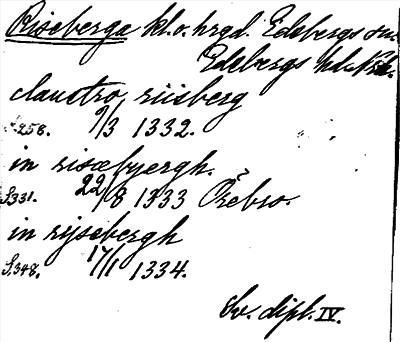 Riseberga kl. o. hrgd. Edsbergs sn.
Edsbergs hd. Nke.
claustro riisberg
S. 258. 9/3 1332.
in risæbjergh.
S. 331. 22/8 1333 Örebro.
in rysebergh
S. 348. 17/1 1334.
Sv. dipl. IV.